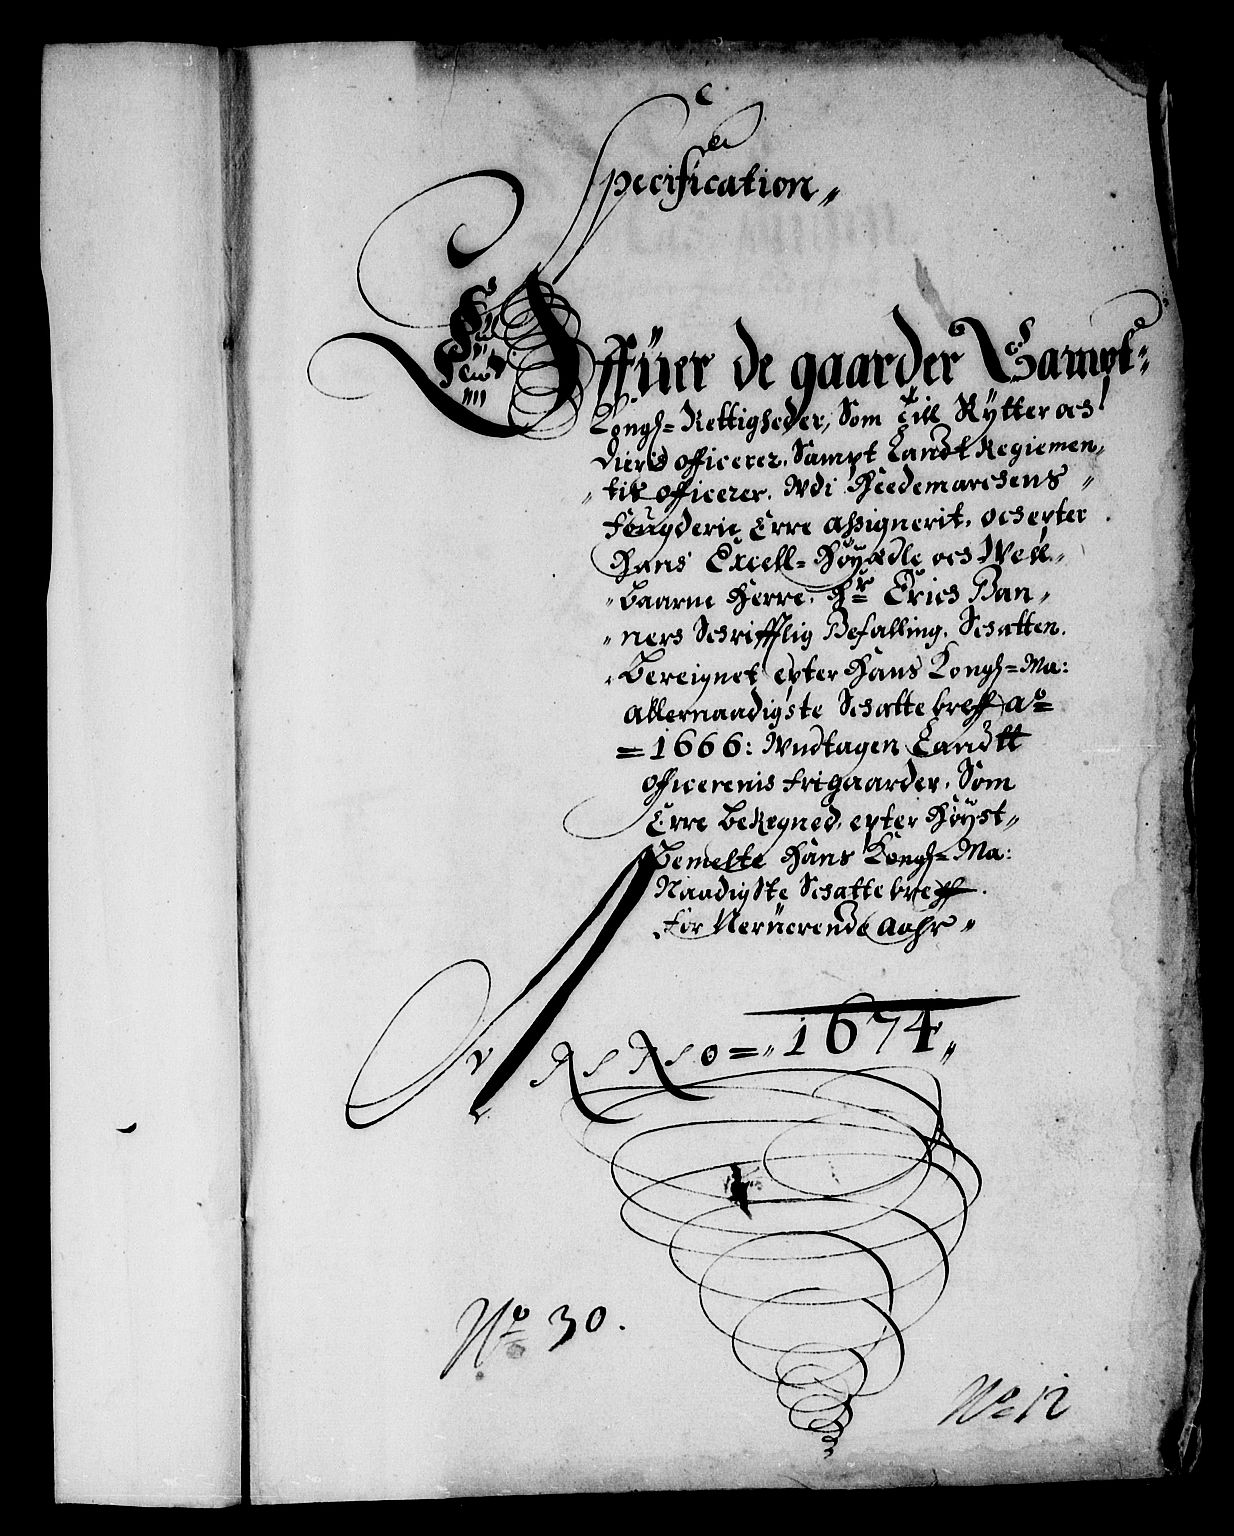 Specification„
Offüer de gaarder Sampt„
Kongl= Rettigheder, Som till Rÿtter och
dieris officerer, Sampt Landt Regiemen„
„tis officerer, Udi Heedemarchens „
Fougderie Erre assignerit, och epter
Hans Excell= Höÿædle och Well„
„baarne Herre, Hr Erich Ban„
„ners Schrifftlig Befalling, Schatten
„Bereignet epter Hans Kongl= Ma:
Allernaadigste Schatte breff Ao
=1666: Undtagen Landtt
officerenis frigaarder, Som
Erre beregned, epter Höÿst„
Bemelte Hans Kongl= Ma:
Naadigste Schatte breff
for Nerüerende Aahr„
ANNO=„1674„
No 30.
No 12